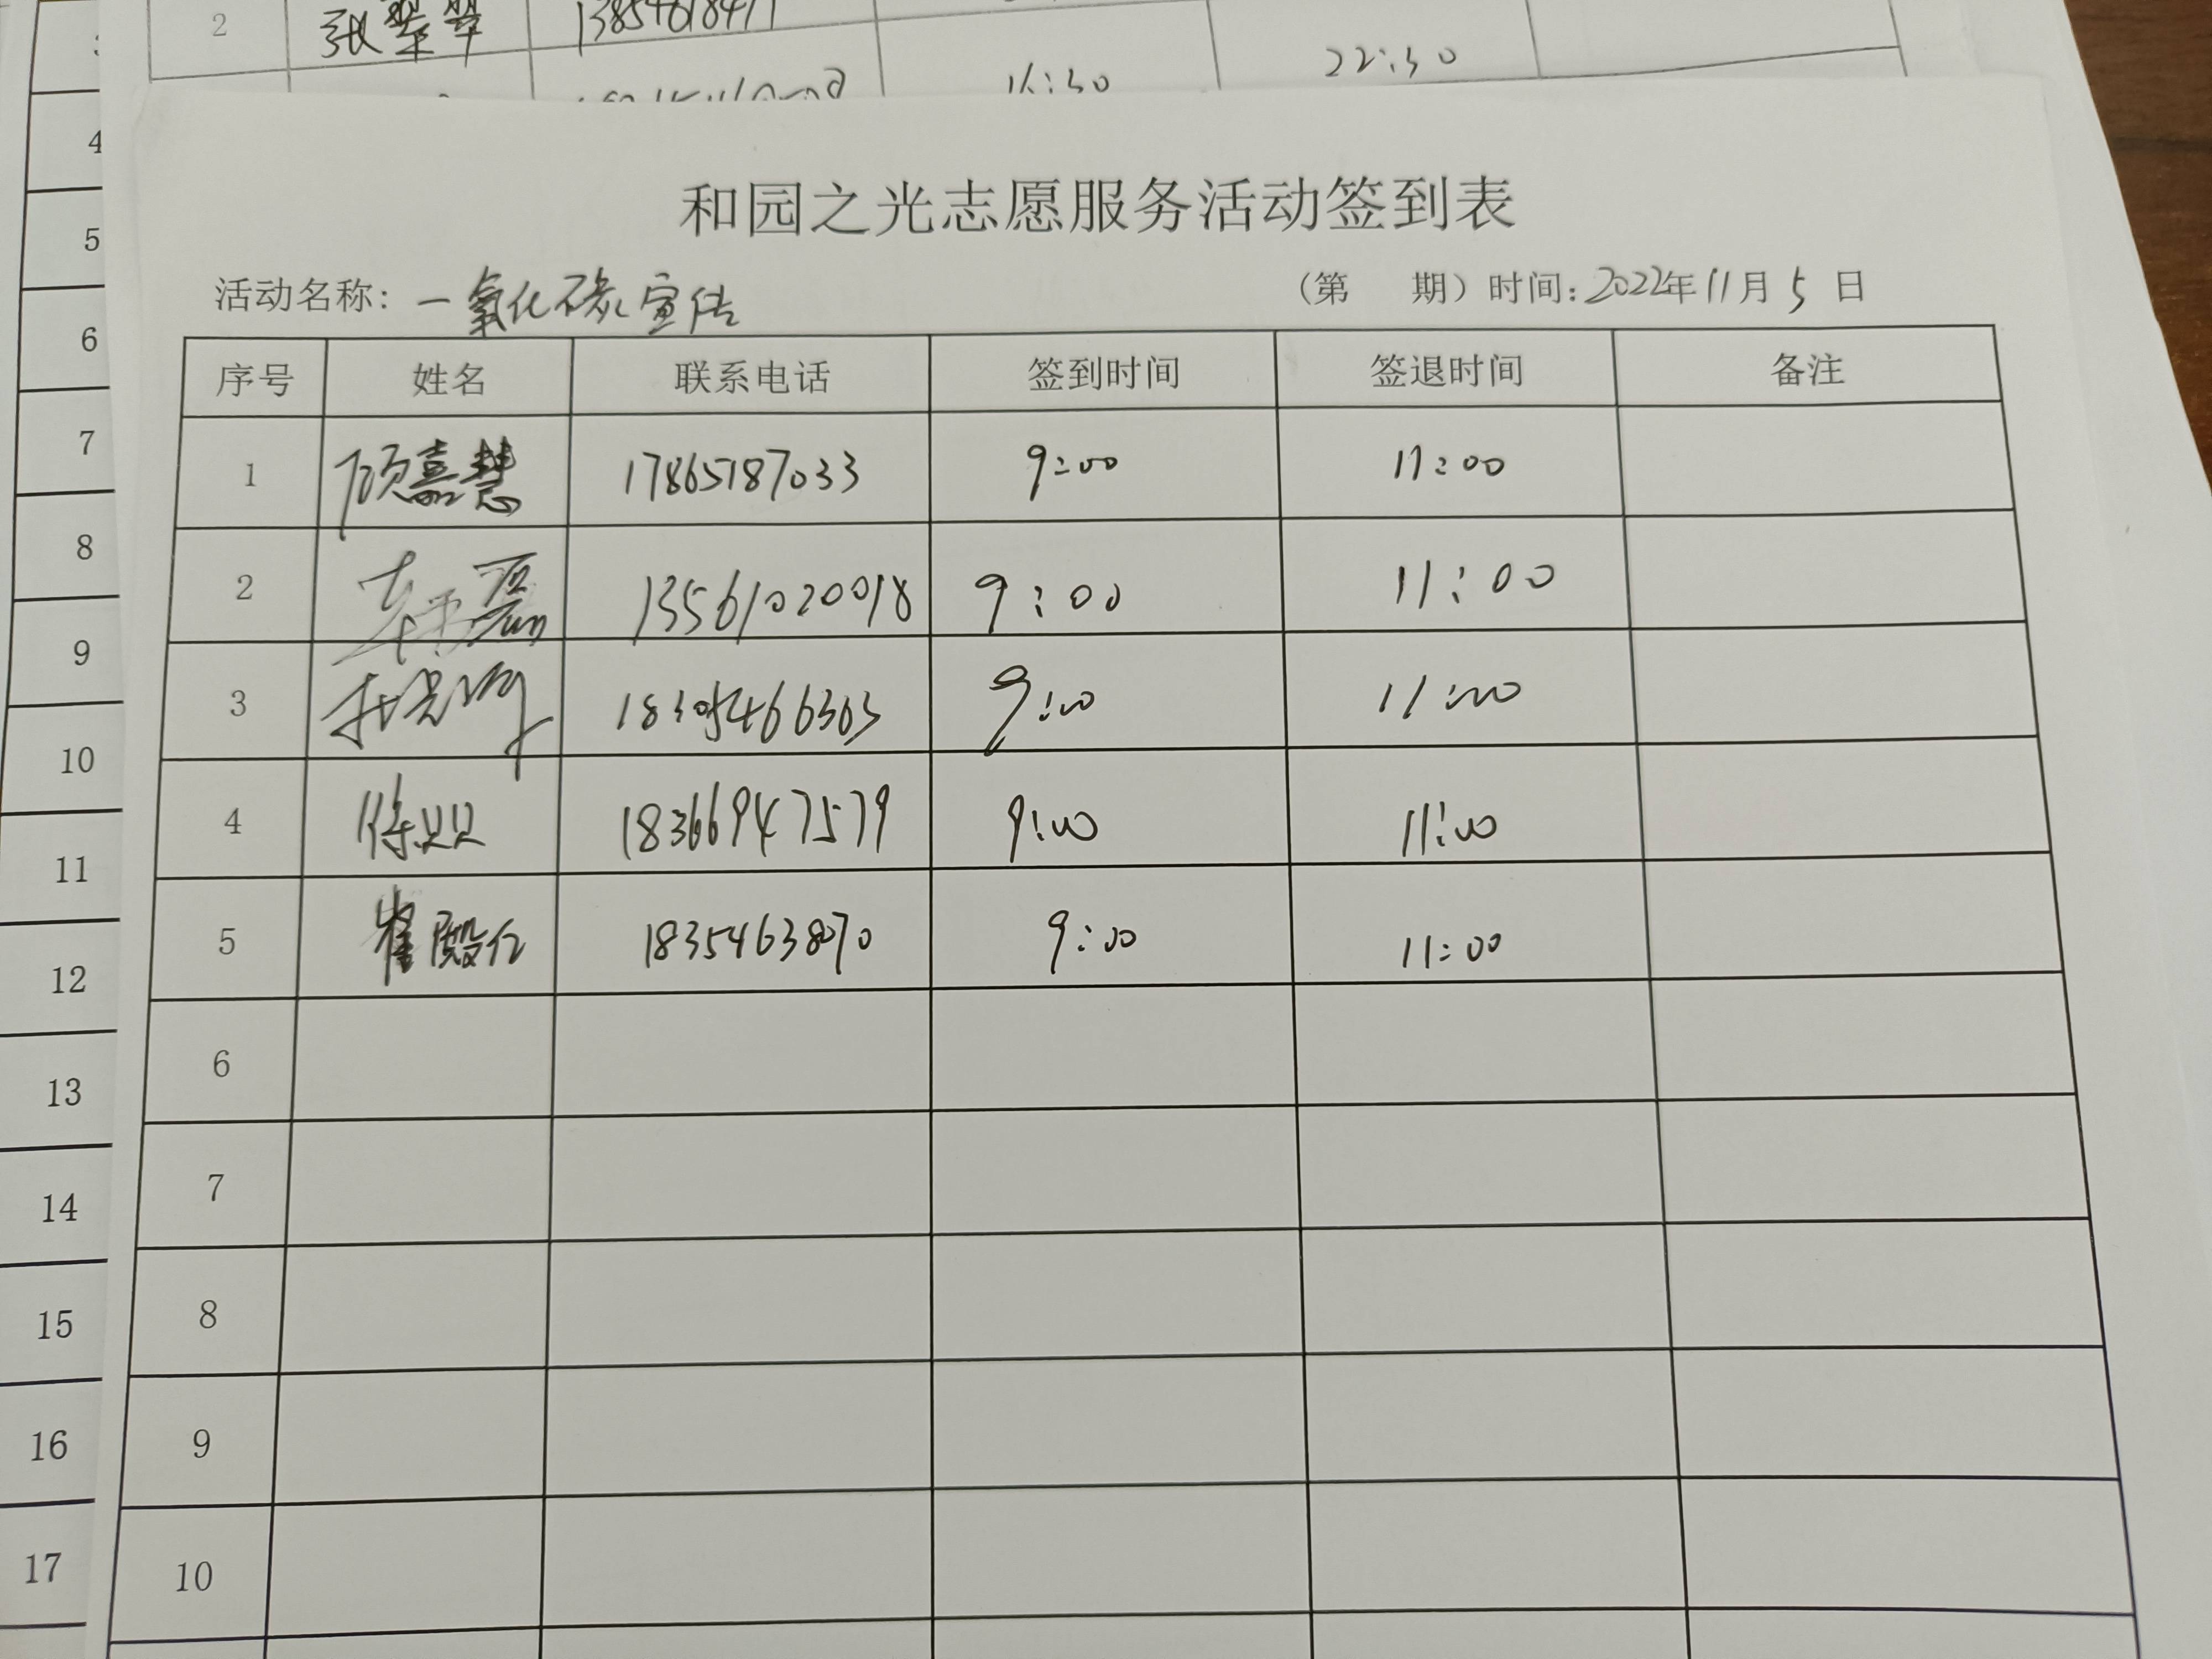 2 张翠翠 13854618471
16:30 22:30
和园之光志愿服务活动签到表
活动名称: 一氧化碳宣传 (第 期) 时间: 2022年11月5日
序号 姓名 联系电话 签到时间 签退时间 备注
1 顾嘉慧 17865187033 9:00 11:00
2 13561020018 9:00 11:00
3 9:00 11:00
4 徐贝贝 18366947579 9:00 11:00
5 崔殿仁 18354638070 9:00 11:00
6
7
8
9
10
4
5
6
7
8
9
10
11
12
13
14
15
16
17